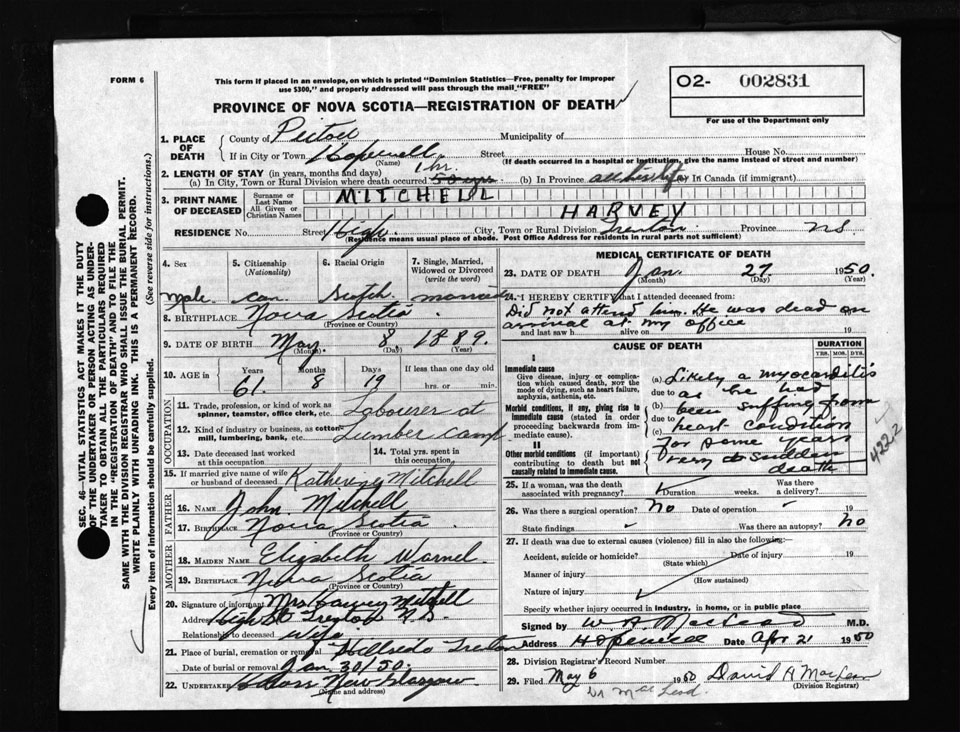 FORM 6
This form if placed in an envelope, on which is printed "Dominion Statistics—Free, penalty for improper
use $300," and properly addressed will pass through the mail "FREE"
PROVINCE OF NOVA SCOTIA—REGISTRATION OF DEATH
O2- 002831
For use of the Department only
1. PLACE OF DEATH
County of Pictou Municipality of
If in City or Town Hopewell Street House No.
(Name) (If death occurred in a hospital or institution, give the name instead of street and number)
2. LENGTH OF STAY (in years, months and days) 1 hr.
(a) In City, Town or Rural Division where death occurred 50 yrs (b) In Province all his life (c) In Canada (if immigrant)
3. PRINT NAME OF DECEASED
Surname or Last Name MITCHELL
All Given or Christian Names HARVEY
RESIDENCE No. Street High City, Town or Rural Division Trenton Province NS
(Residence means usual place of abode. Post Office Address for residents in rural parts not sufficient)
4. Sex
5. Citizenship (Nationality)
6. Racial Origin
7. Single, Married, Widowed or Divorced (write the word)
male can Scotch married
8. BIRTHPLACE Nova Scotia
(Province or Country)
9. DATE OF BIRTH May 8 1889.
(Month) (Day) (Year)
10. AGE in Years Months Days If less than one day old
61. 8 19 hrs. or min.
OCCUPATION
11. Trade, profession, or kind of work as
spinner, teamster, office clerk, etc. Labourer at
12. Kind of industry or business, as cotton-
mill, lumbering, bank, etc. Lumber camp
13. Date deceased last worked
at this occupation
14. Total yrs. spent in
this occupation
15. If married give name of wife
or husband of deceased Katherine Mitchell
FATHER
16. NAME John Mitchell
17. BIRTHPLACE Nova Scotia
(Province or Country)
MOTHER
18. MAIDEN NAME Elizabeth
19. BIRTHPLACE Nova Scotia
(Province or Country)
20. Signature of informant Mrs Harvey Mitchell
Address High St Trenton N.S.
Relationship to deceased wife
21. Place of burial, cremation or removal Trenton
Date of burial or removal Jan 30/50
22. Undertaker New Glasgow.
(Name and address)
MEDICAL CERTIFICATE OF DEATH
23. DATE OF DEATH Jan. 27 1950.
(Month) (Day) (Year)
24. I HEREBY CERTIFY that I attended deceased from:
Did not attend him. He was dead on
arrival at my office
and last saw h alive on 19
CAUSE OF DEATH
DURATION
YRS. MOS. DYS.
I
Immediate cause
Give disease, injury or complication
which caused death, NOT the
mode of dying, such as heart failure,
asphyxia, asthenia, etc.
Morbid conditions, if any, giving rise to
immediate cause (stated in order
proceeding backwards from immediate
cause).
II
Other morbid conditions (if important)
contributing to death but not
causally related to immediate cause.
(a) Likely a myocarditis
due to as he had
(b) been suffing from
due to
(c) heart condition
for some years
very sudden
death
4222
25. If a woman, was the death
associated with pregnancy? Duration weeks. Was there
a delivery?
26. Was there a surgical operation? No Date of operation 19
State findings Was there an autopsy? no
27. If death was due to external causes (violence) fill in also the following:—
Accident, suicide or homicide? Date of injury 19
(State which)
Manner of injury
(How sustained)
Nature of injury
Specify whether injury occurred in industry, in home, or in public place
Signed by W. A. MacLeod M.D.
Address Hopewell Date Apr 21 1950
28. Division Registrar's Record Number
29. Filed May 6 1950 David A MacLean
(Division Registrar)
Dr MacLeod.
SEC. 46—VITAL STATISTICS ACT MAKES IT THE DUTY
OF THE UNDERTAKER OR PERSON ACTING AS UNDERTAKER
TO OBTAIN ALL THE PARTICULARS REQUIRED
IN THE "REGISTRATION OF DEATH" AND TO FILE THE
SAME WITH THE DIVISION REGISTRAR WHO SHALL ISSUE THE BURIAL PERMIT.
WRITE PLAINLY WITH UNFADING INK. THIS IS A PERMANENT RECORD.
Every item of information should be carefully supplied. (See reverse side for instructions.)